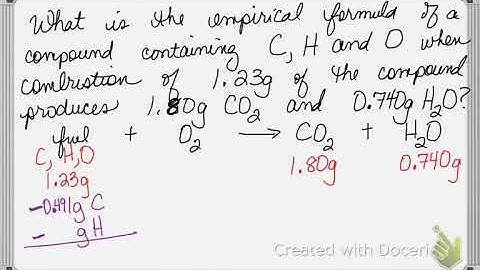 What is the empirical formula of a
compound containing C, H and O when
combustion of 1.23g of the compound
produces 1.80g CO2 and 0.740g H2O?
fuel + O2 → CO2 + H2O
C, H, O
1.23g 1.80g 0.740g
-0.491g C
- g H
Created with Doceri